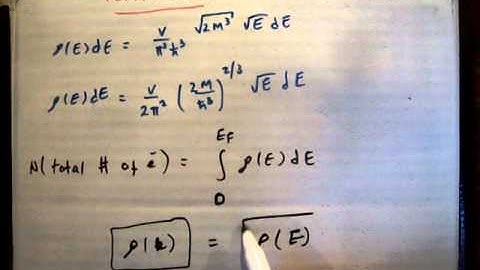 ρ(E)dE = V/π²ħ³ √2M³ √E dE
ρ(E)dE = V/2π² (2M/ħ³)^2/3 √E dE
N(total # of e⁻) = ∫₀^EF ρ(E)dE
ρ(k) = ρ(E)